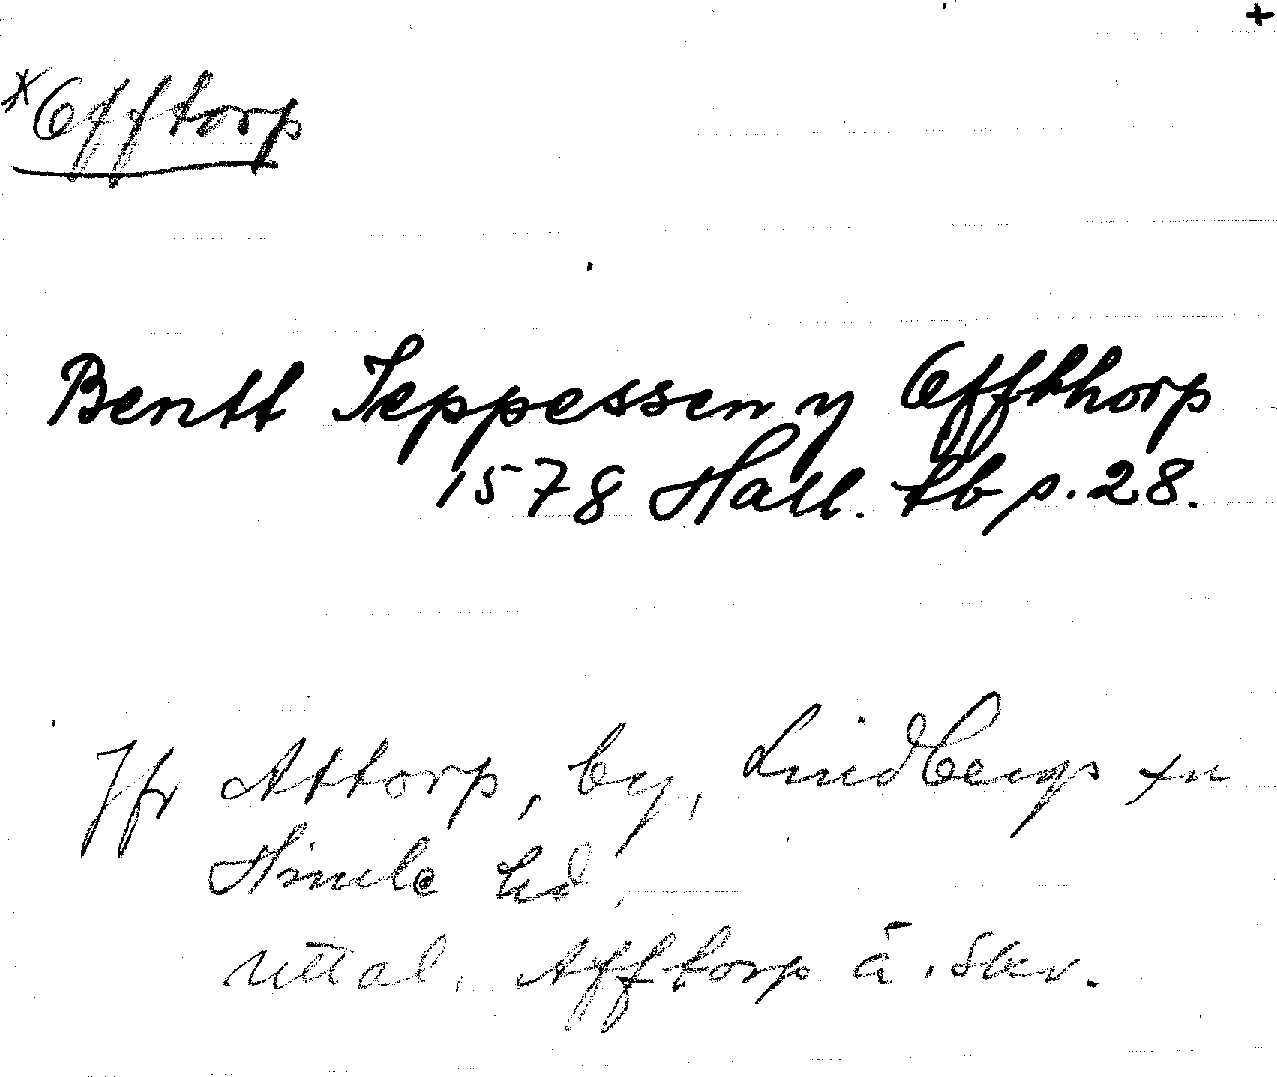 +
*Efftorp
Bentt Jeppessen y Effthorp
1578 Hall. tb p. 28.
Jfr Attorp, by, Lindbergs sn
Himle hd.
uttal. Afftorp